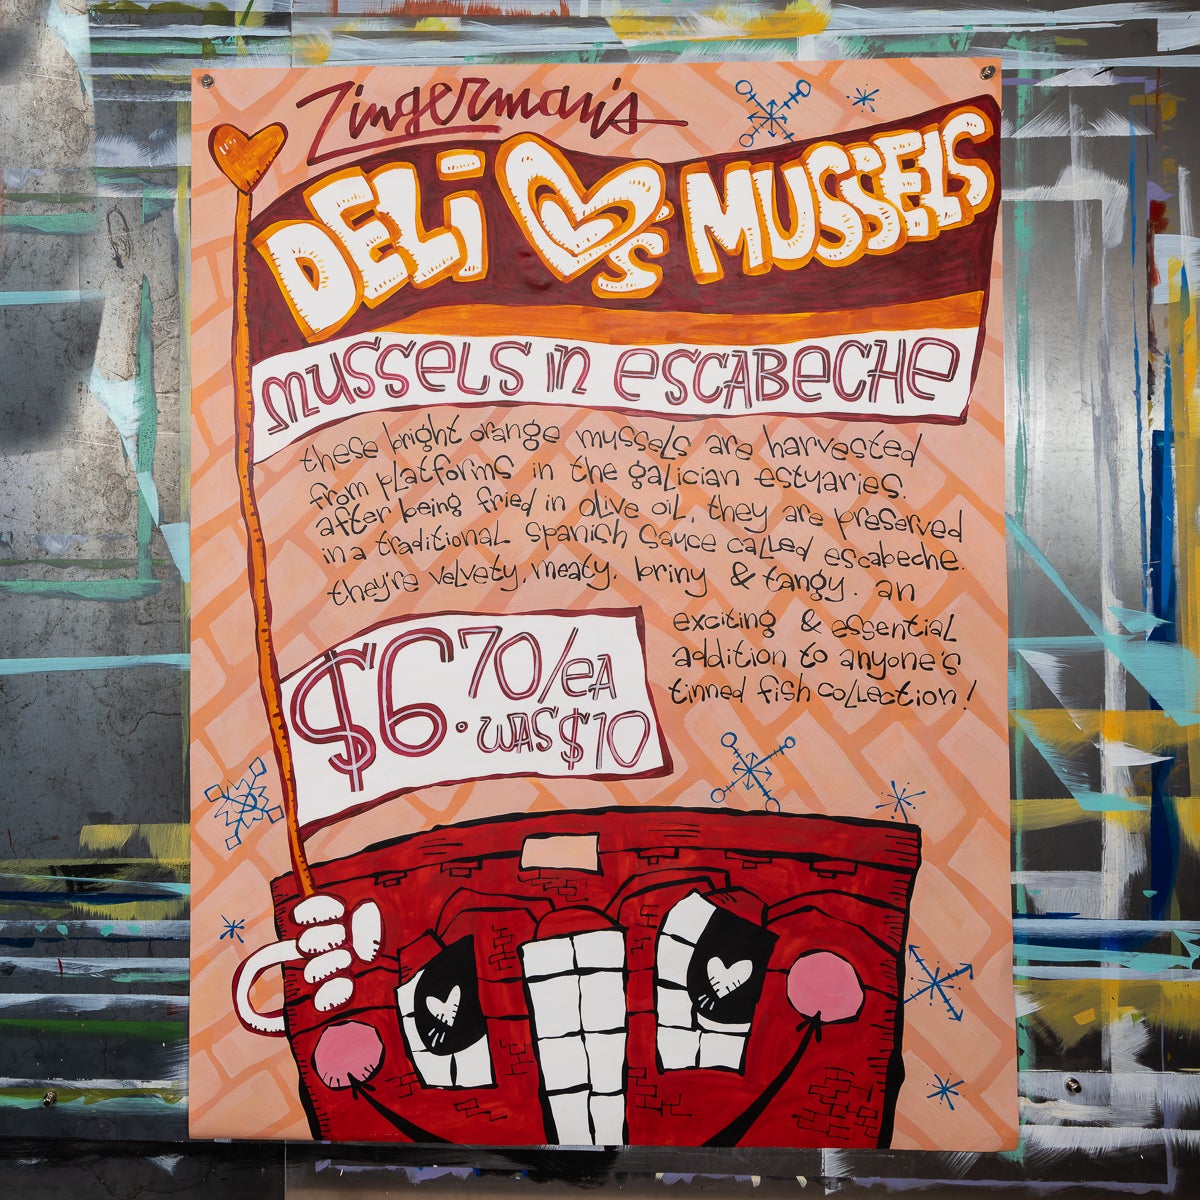 Zingerman's
DELi ♥'s MUSSELS
MUSSELS in ESCABECHE
these bright orange mussels are harvested
from platforms in the galician estuaries.
after being fried in olive oil, they are preserved
in a traditional Spanish Sauce called escabeche.
they're velvety, meaty, briny & tangy. an
exciting & essential
addition to anyone's
tinned fish collection!
$6.70/EA
WAS $10